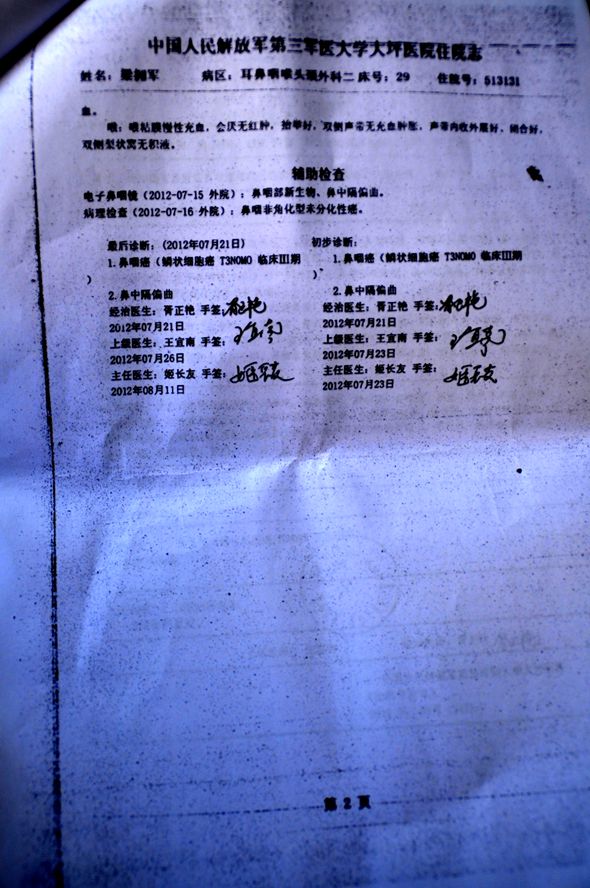 中国人民解放军第三军医大学大坪医院住院志
姓名：梁拥军 病区：耳鼻咽喉头颈外科二 床号：29 住院号：513131
血。
喉：喉粘膜慢性充血，会厌无红肿，抬举好，双侧声带无充血肿胀，声带内收外展好，闭合好，
双侧梨状窝无积液。
辅助检查
电子鼻咽镜（2012-07-15 外院）：鼻咽部新生物、鼻中隔偏曲。
病理检查（2012-07-16 外院）：鼻咽非角化型未分化性癌。
最后诊断：（2012年07月21日） 初步诊断：
1.鼻咽癌（鳞状细胞癌 T3N0M0 临床III期 1.鼻咽癌（鳞状细胞癌 T3N0M0 临床III期
） ）
2.鼻中隔偏曲 2.鼻中隔偏曲
经治医生：胥正艳 手签： 经治医生：胥正艳 手签：
2012年07月21日 2012年07月21日
上级医生：王宜南 手签： 上级医生：王宜南 手签：
2012年07月26日 2012年07月23日
主任医生：姬长友 手签：姬长友 主任医生：姬长友 手签：姬长友
2012年08月11日 2012年07月23日
第 2 页